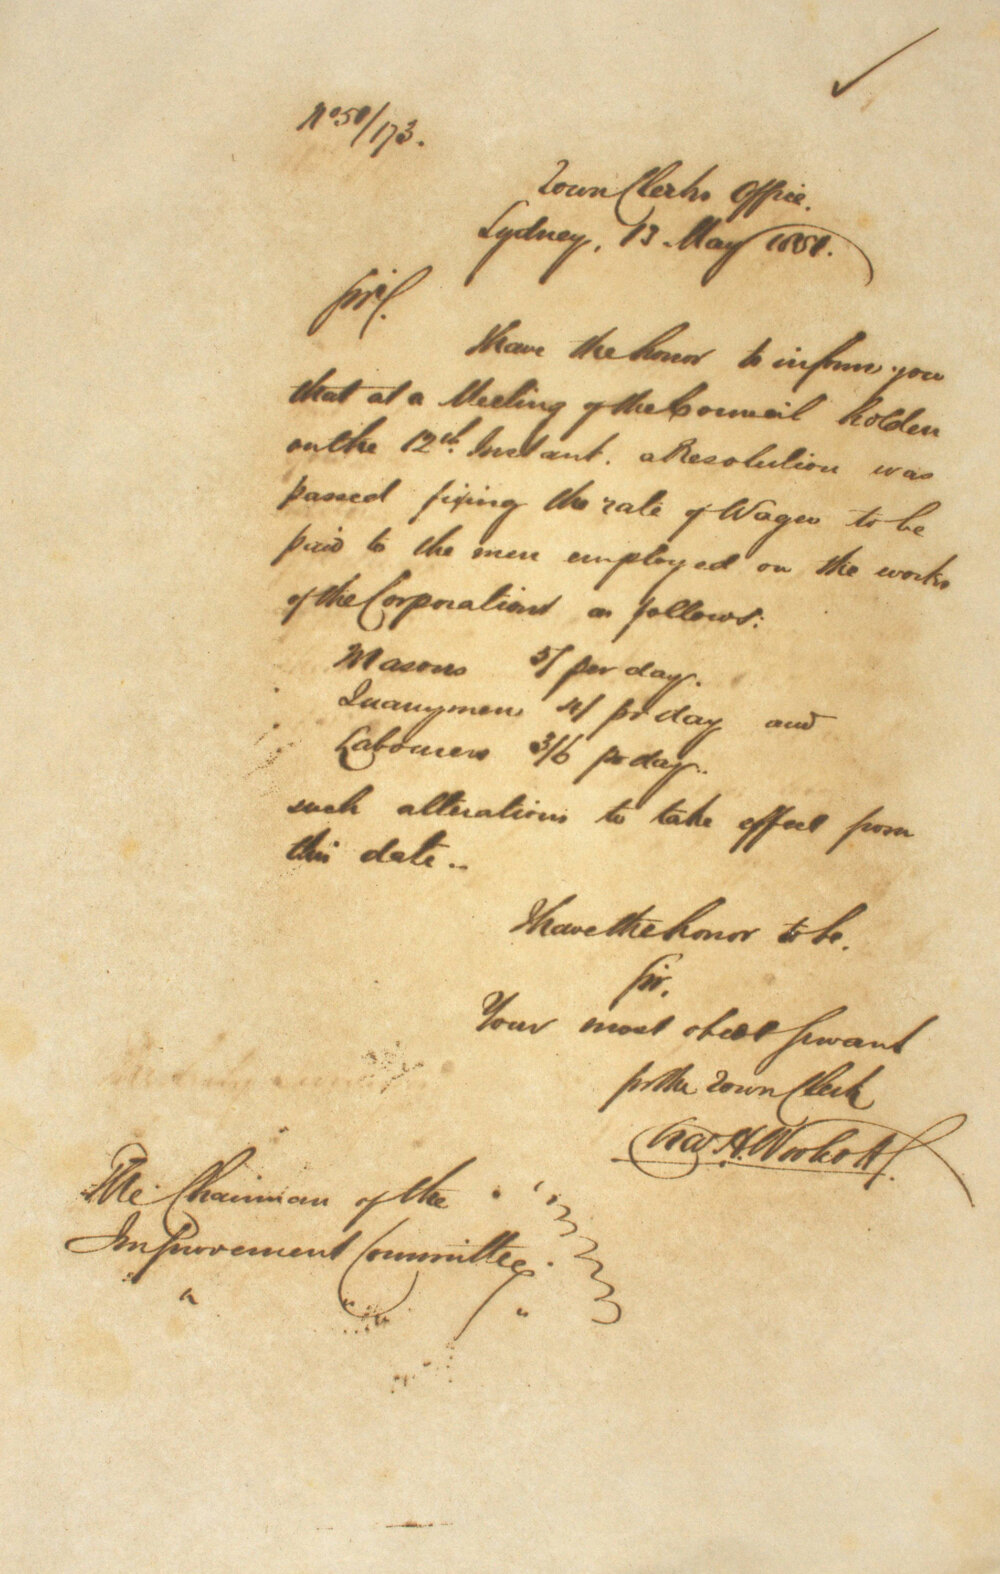 No 51/173.
Town Clerks Office.
Sydney, 13 May 1851.
Sir,
I have the honor to inform you
that at a Meeting of the Council holden
on the 12th. Instant. a Resolution was
passed fixing the rate of Wages to be
paid to the men employed on the works
of the Corporation as follows:
Masons 5/ per day.
Quarrymen 4/ pr day and
Labourers 3/6 pr day.
such alterations to take effect from
this date..
I have the honor to be.
Sir,
Your most obedt Servant
for the Town Clerk
The Chairman of the
Improvement Committee.